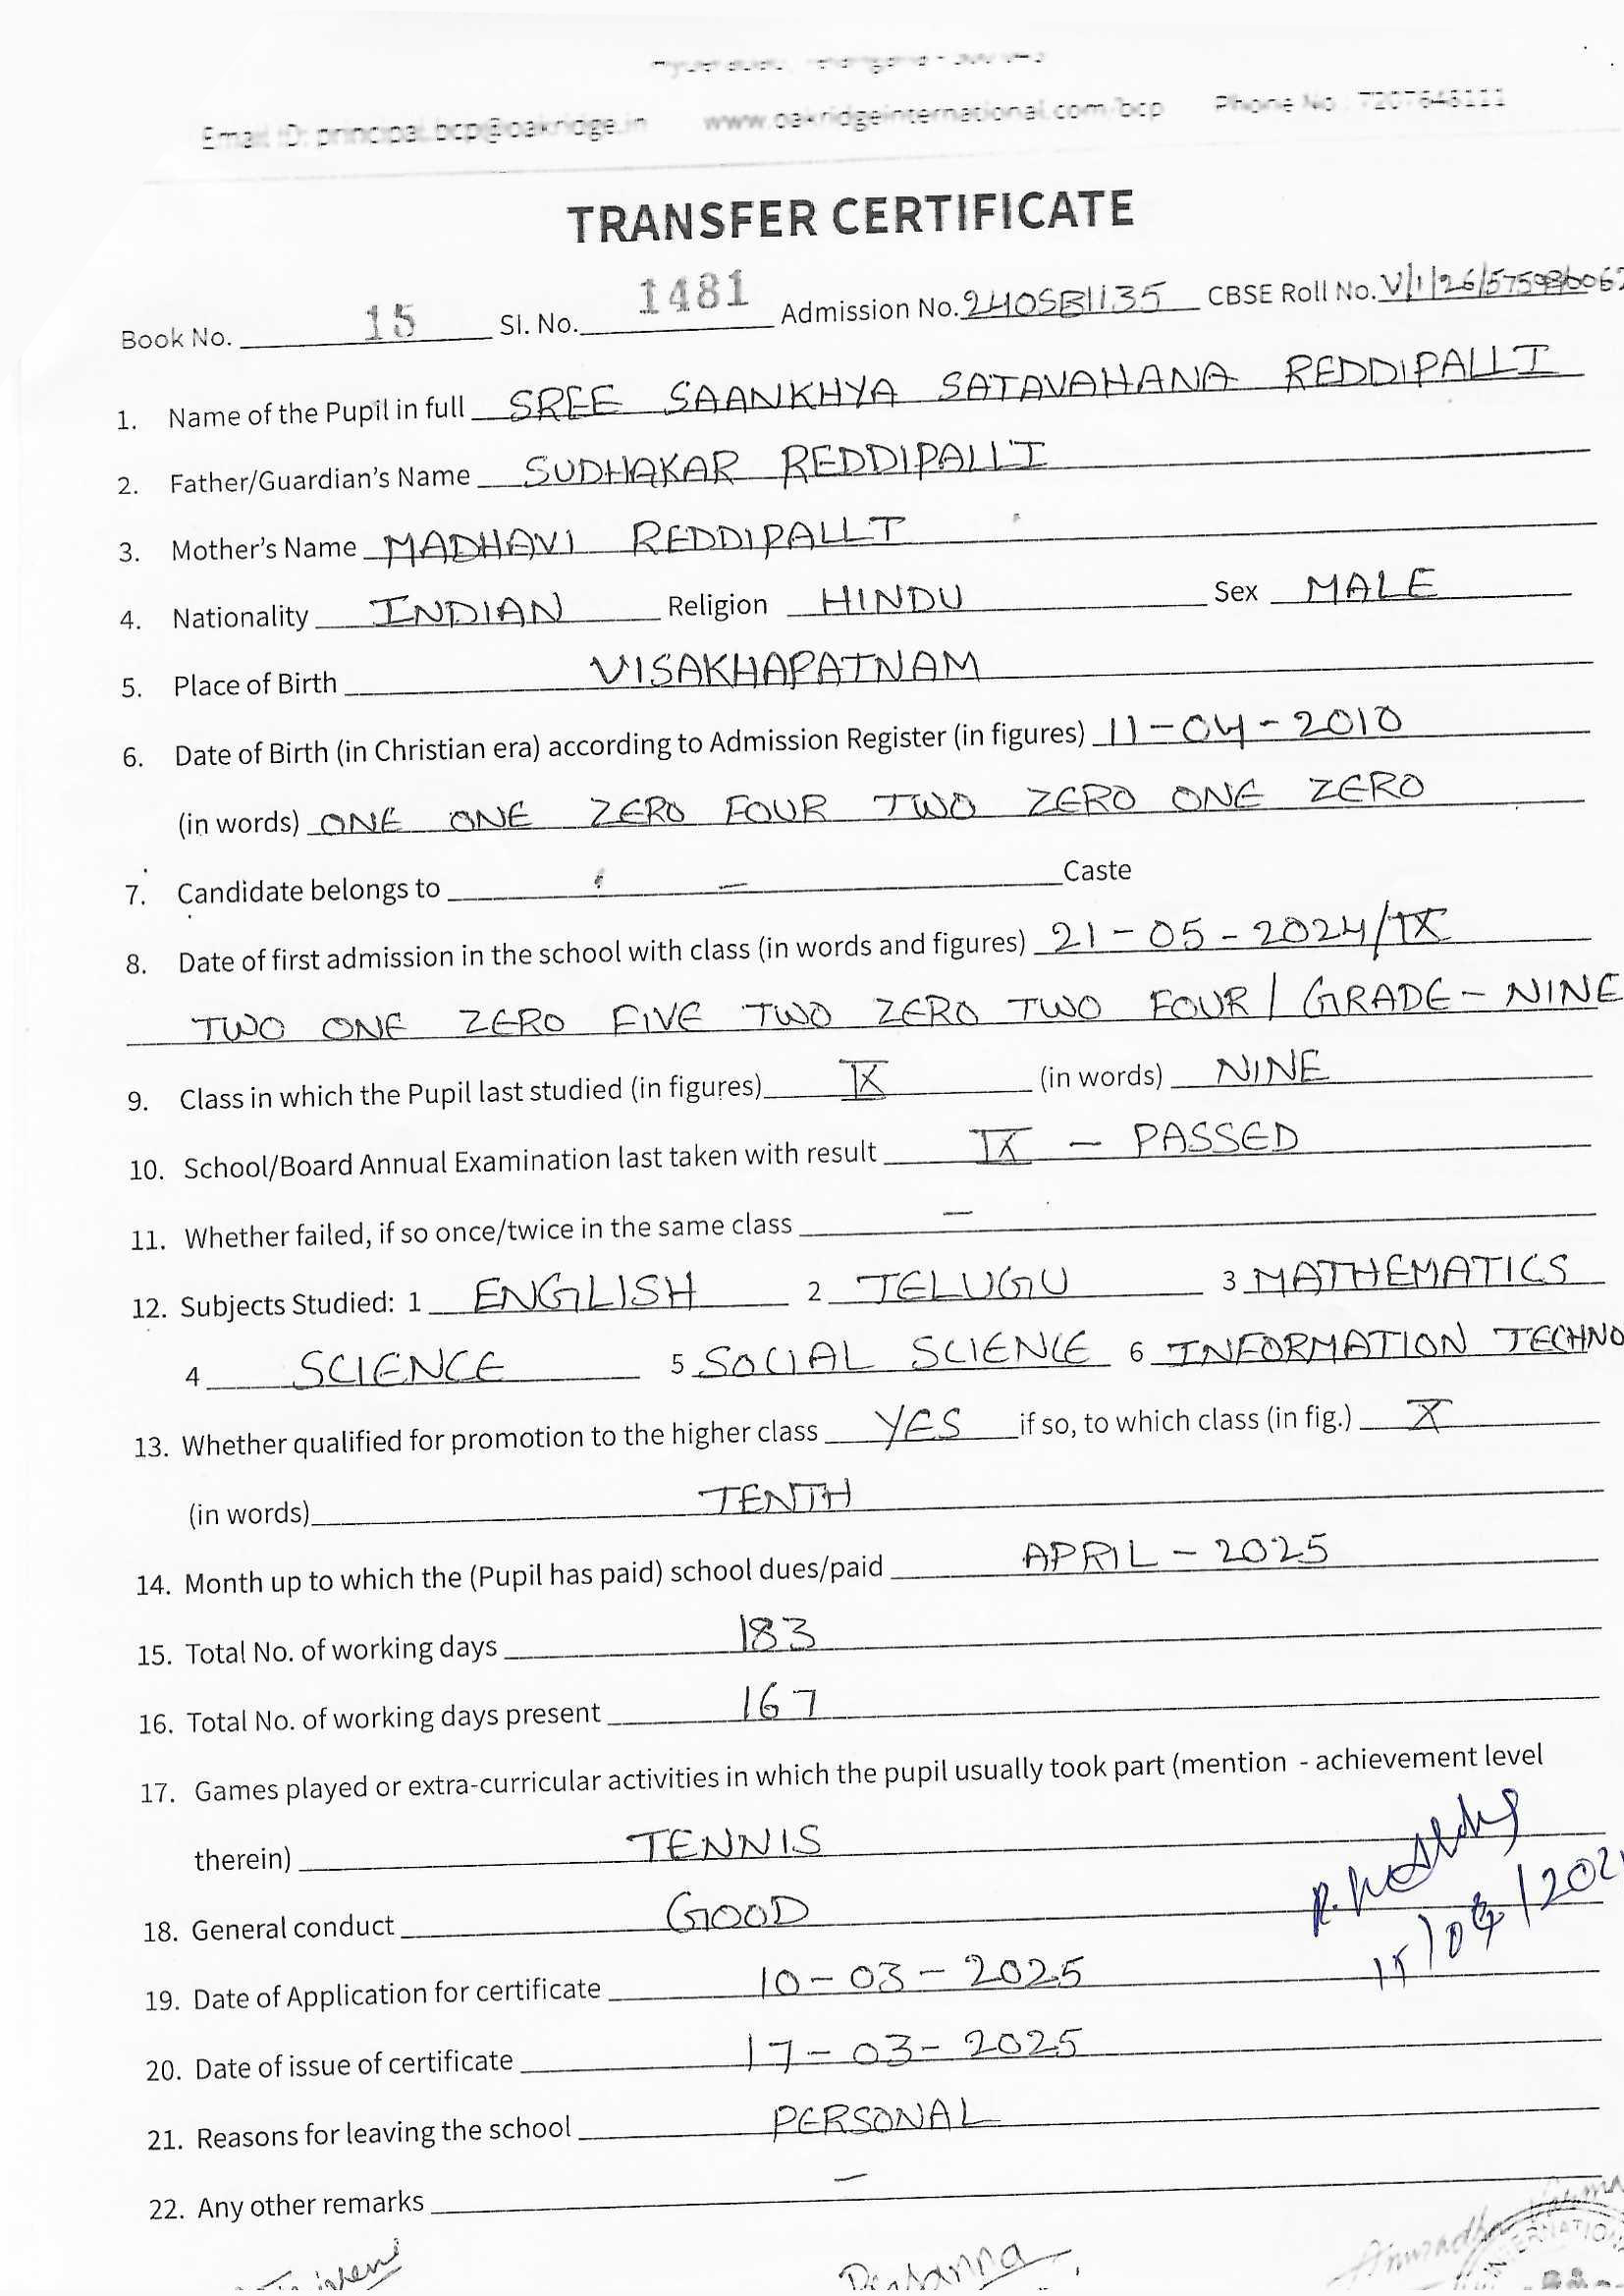 Email ID: principal.bcp@oakridge.in www.oakridgeinternational.com/bcp Phone No : 7207645111
TRANSFER CERTIFICATE
Book No. 15 Sl. No. 1481 Admission No. 240SB1135 CBSE Roll No.
1. Name of the Pupil in full SREE SAANKHYA SATAVAHANA REDDIPALLI
2. Father/Guardian's Name SUDHAKAR REDDIPALLI
3. Mother's Name MADHAVI REDDIPALLI
4. Nationality INDIAN Religion HINDU Sex MALE
5. Place of Birth VISAKHAPATNAM
6. Date of Birth (in Christian era) according to Admission Register (in figures) 11-04-2010
(in words) ONE ONE ZERO FOUR TWO ZERO ONE ZERO
7. Candidate belongs to — Caste
8. Date of first admission in the school with class (in words and figures) 21-05-2024/IX
TWO ONE ZERO FIVE TWO ZERO TWO FOUR / GRADE - NINE
9. Class in which the Pupil last studied (in figures) IX (in words) NINE
10. School/Board Annual Examination last taken with result IX — PASSED
11. Whether failed, if so once/twice in the same class —
12. Subjects Studied: 1 ENGLISH 2 TELUGU 3 MATHEMATICS
4 SCIENCE 5 SOCIAL SCIENCE 6 INFORMATION TECHNO
13. Whether qualified for promotion to the higher class YES if so, to which class (in fig.) X
(in words) TENTH
14. Month up to which the (Pupil has paid) school dues/paid APRIL - 2025
15. Total No. of working days 183
16. Total No. of working days present 167
17. Games played or extra-curricular activities in which the pupil usually took part (mention - achievement level
therein) TENNIS
18. General conduct GOOD
19. Date of Application for certificate 10-03-2025
20. Date of issue of certificate 17-03-2025
21. Reasons for leaving the school PERSONAL
22. Any other remarks —